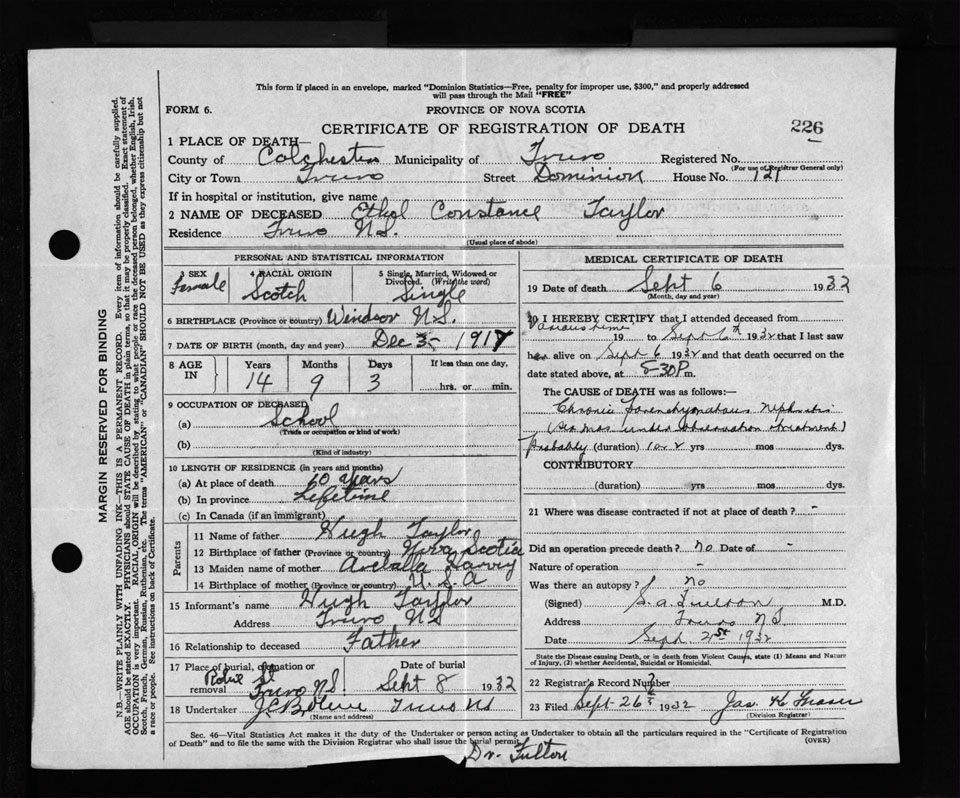 This form if placed in an envelope, marked "Dominion Statistics—Free, penalty for improper use, $300," and properly addressed
will pass through the Mail "FREE"
FORM 6.
PROVINCE OF NOVA SCOTIA
CERTIFICATE OF REGISTRATION OF DEATH
226
1 PLACE OF DEATH
County of Colchester Municipality of Truro Registered No.
(For use of Registrar General only)
City or Town Truro Street Dominion House No. 121
If in hospital or institution, give name
2 NAME OF DECEASED Ethel Constance Taylor
Residence Truro N.S.
(Usual place of abode)
PERSONAL AND STATISTICAL INFORMATION
3 SEX Female
4 RACIAL ORIGIN Scotch
5 Single, Married, Widowed or Divorced. (Write the word) Single
6 BIRTHPLACE (Province or country) Windsor N.S.
7 DATE OF BIRTH (month, day and year) Dec 3- 1917
8 AGE IN
Years Months Days If less than one day,
14 9 3 hrs. or min.
9 OCCUPATION OF DECEASED
(a) School
(Trade or occupation or kind of work)
(b)
(Kind of industry)
10 LENGTH OF RESIDENCE (in years and months)
(a) At place of death 10 years
(b) In province Lifetime
(c) In Canada (if an immigrant)
Parents
11 Name of father Hugh Taylor
12 Birthplace of father (Province or country) Nova Scotia
13 Maiden name of mother Harvey
14 Birthplace of mother (Province or country) U.S.A
15 Informant's name Hugh Taylor
Address Truro NS
16 Relationship to deceased Father
17 Place of burial, cremation or removal Robie St Truro N.S.
Date of burial Sept 8 1932
18 Undertaker Truro NS
(Name and address)
MEDICAL CERTIFICATE OF DEATH
19 Date of death Sept 6 1932
(Month, day and year)
20 I HEREBY CERTIFY that I attended deceased from
Various times 19 to Sept 6th 1932 that I last saw
her alive on Sept 6 1932 and that death occurred on the
date stated above, at 8-30 P m.
The CAUSE OF DEATH was as follows:—
Chronic Parenchymatous Nephritis
under observation & treatment)
Probably (duration) 1 or 2 yrs mos dys.
CONTRIBUTORY
(duration) yrs mos dys.
21 Where was disease contracted if not at place of death? -
Did an operation precede death? no Date of -
Nature of operation -
Was there an autopsy? no
(Signed) S.A. Fulton M.D.
Address Truro N.S.
Date Sept. 21st 1932
State the Disease causing Death, or in death from Violent Causes, state (1) Means and Nature
of Injury, (2) whether Accidental, Suicidal or Homicidal.
22 Registrar's Record Number
23 Filed Sept-26 1932 Jas H Fraser
(Division Registrar)
Sec. 46—Vital Statistics Act makes it the duty of the Undertaker or person acting as Undertaker to obtain all the particulars required in the "Certificate of Registration
of Death" and to file the same with the Division Registrar who shall issue the burial permit.
(OVER)
Dr. Fulton
MARGIN RESERVED FOR BINDING
N.B.—WRITE PLAINLY WITH UNFADING INK—THIS IS A PERMANENT RECORD. Every item of information should be carefully supplied.
AGE should be stated EXACTLY. PHYSICIANS should STATE CAUSE OF DEATH in plain terms, so that it may be properly classified. Exact statement of
OCCUPATION is very important. RACIAL ORIGIN will be described by stating to what people or race the deceased person belonged, whether English, Irish,
Scotch, French, German, Russian, Ruthenian, etc. The terms "AMERICAN" or "CANADIAN" SHOULD NOT BE USED as they express citizenship but not
a race or people. See instructions on back of Certificate.